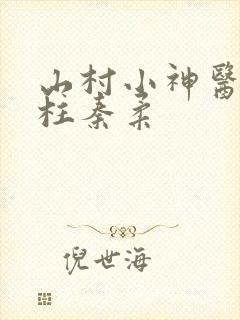 山村小神醫
柱秦柔
倪世海